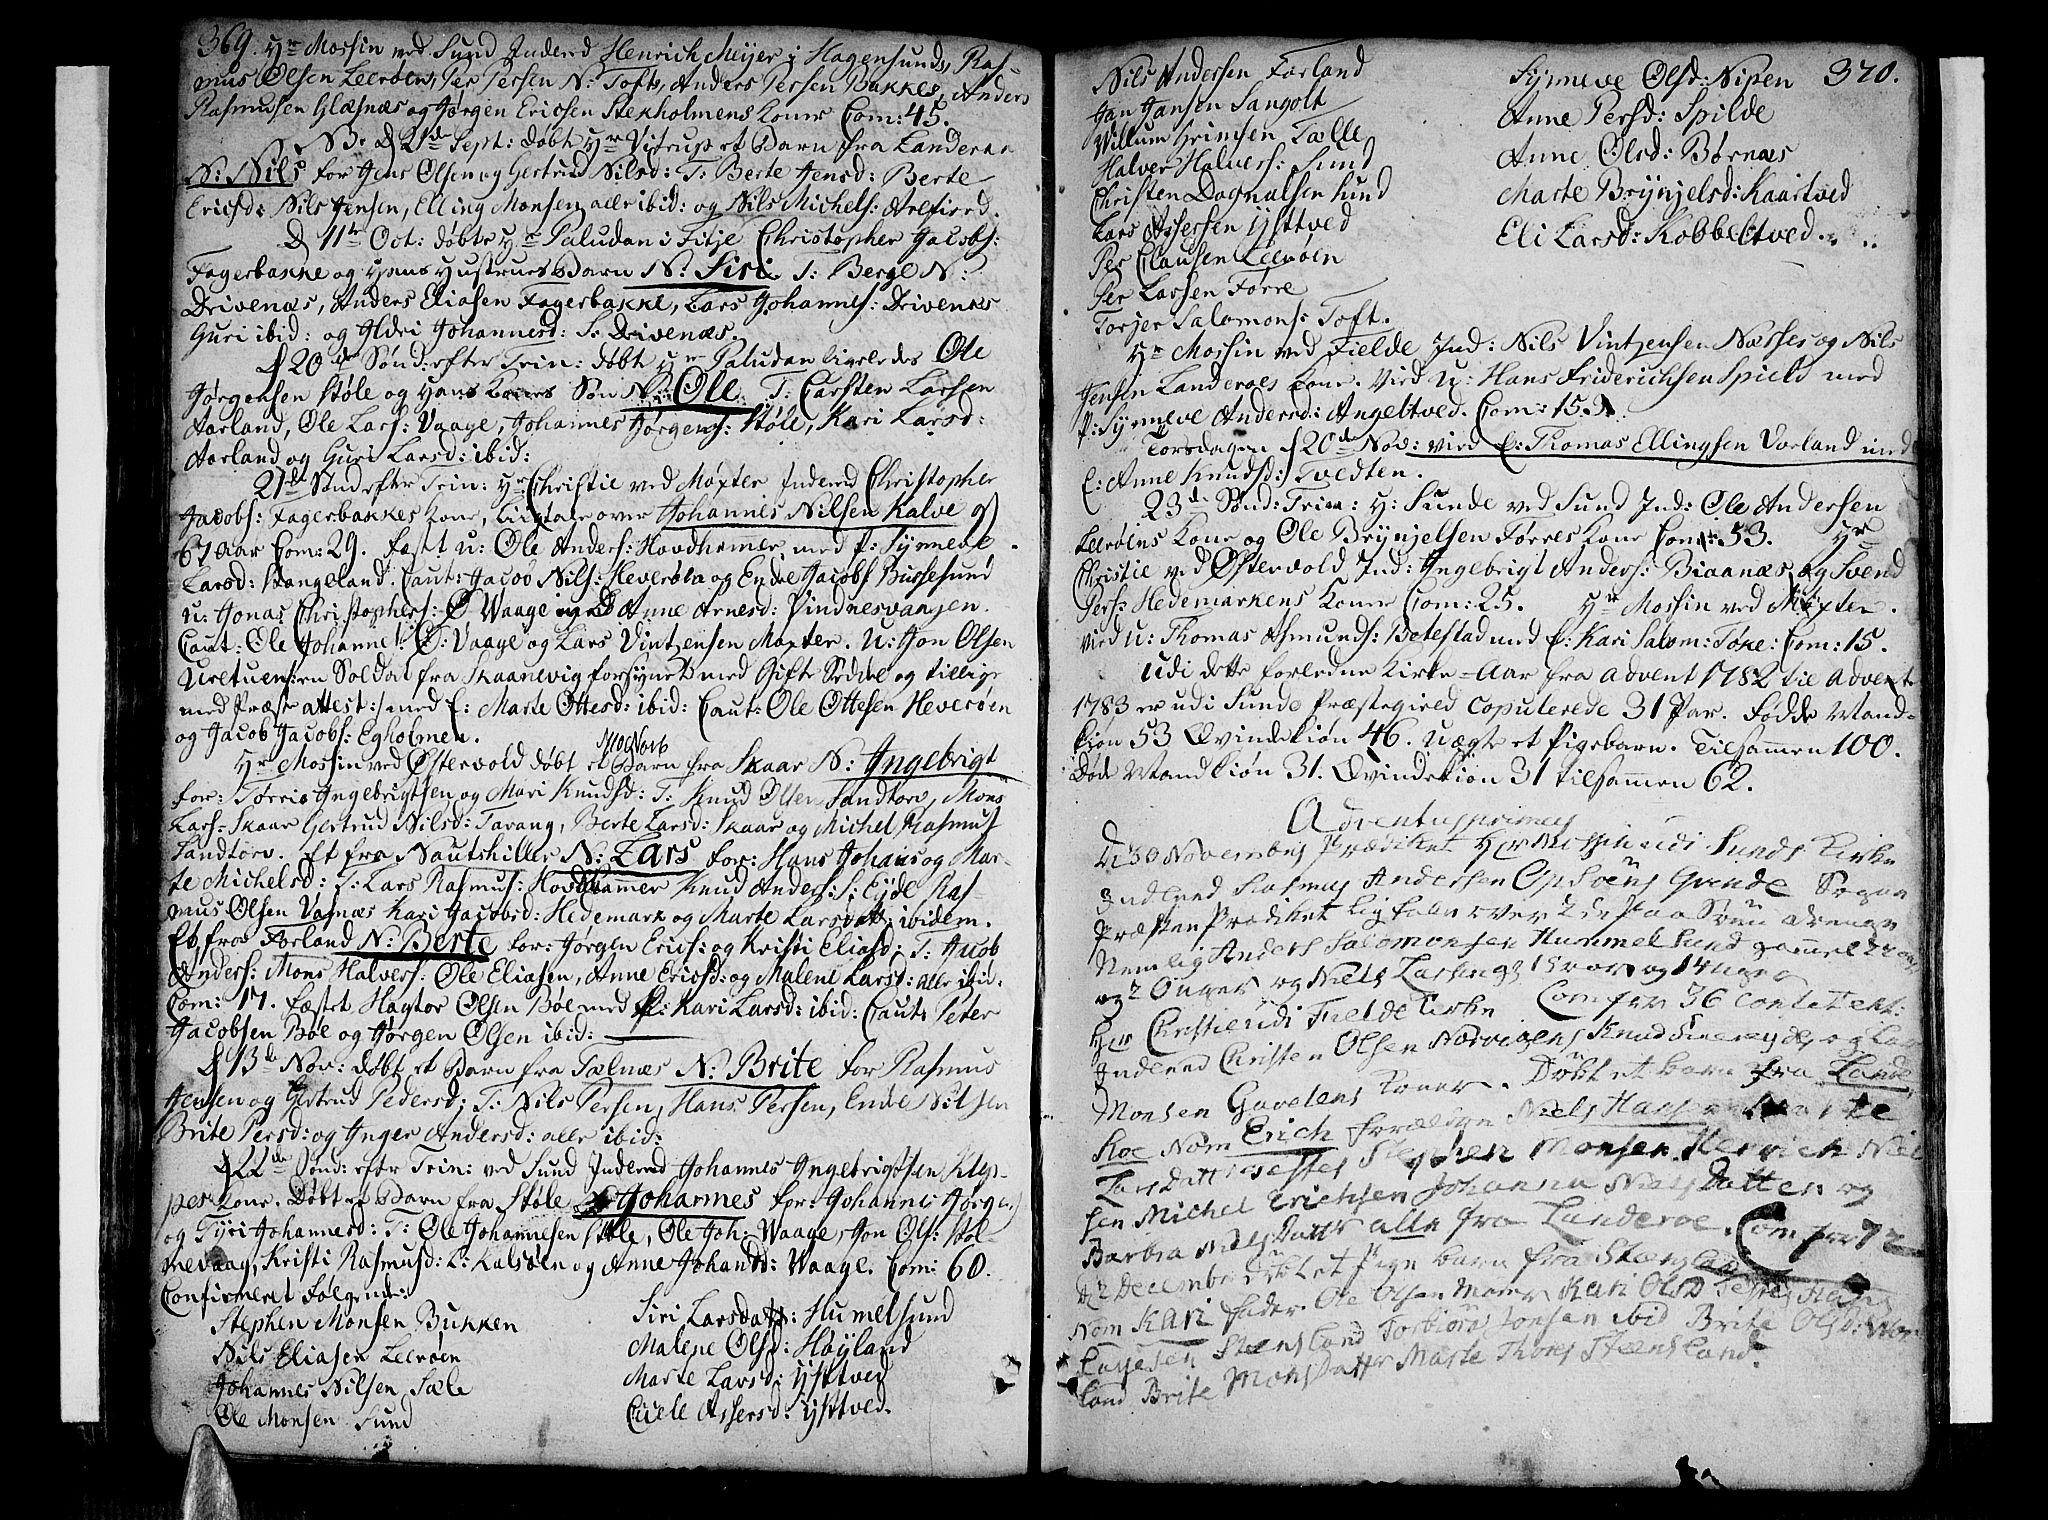 369. Hr Mossin ved Sund Inderd Henrich Meijer i Hagensunds, Ras-
mus Olsen Leerøens, Per Persen N: Tofts, Anders Persen Bakkes, Anders
Rasmussen Glæsnæs og Jørgen Ericsen Stekholmens Koner Com: 45.
NB. d 21de Sept: døbt Hr Vitrup et Barn fra Landeroe
N: Nils for Jens Olsen og Gertrud Nilsd: T: Berte Jensd: Berte
Ericsd: Nils Jensen, Elling Monsen alle ibid: og Nils Michels: Arefiord.
D 11te Oct: døbte Hr Paludan i Fitje Christopher Jacobs:
Fagerbakke og Hans Hustrues Barn N: Siri. T: Berge N:
Drivenæs, Anders Eliasen Fagerbakke, Lars Johannes: Drivenæs
Guri ibid: og Ildri Johannesd: S: Drivenæs.
d 20de Sønd: efter Trin: døbt Hr Paludan ligeledes Ole
Jørgensen Støle og Hans Koness Søn N: Ole. T: Carsten Larsen
Aarland, Ole Lars: Vaage, Johannes Jørgens: Støle, Kari Larsd:
Aarland og Guri Larsd: ibid:
21de Sønd efter Trin: Hr Christie ved Møxter Inderd Christopher
Jacobs: Fagerbakkes Kone, Ligtale over Johannes Nilsen Kalve gl
67 Aar Com: 29. Fæst U: Ole Anders: Hovdhammer med P: Synneve
Larsd: Stangeland. Caut: Jacob Nils: Heverøen og Endre Jacobs Bussesund
U: Jonas Christophers: Ø Waage og Anne Arnesd: Vindnesvangen.
Caut: Ole Johannes: Ø: Vaage og Lars Vintzensen Møxter. U: Jon Olsen
Uretuen: en Soldat fra Skaanevig forsynet med Gifte Seddel og tillige
med Præste attest :/ med E: Marte Ottesd: ibid: Caut: Ole Ottesen Heverøen
og Jacob Jacobs: Egholmen.
d 10 Novb
Hr Mossin ved Østervold døbt et Barn fra Skaar N: Ingebrigt
for: Tørris Ingebrigtsen og Mari Knudsd: T: Knud Olsen Sandtorv, Mons
Lars: Skaar Gertrud Nilsd: Tarang, Berte Larsd: Skaar og Michel Rasmus
Sandtorv. Et fra Nautskiller N: Lars for: Hans Johans og Mar-
te Michelsd: T: Lars Rasmus: Hovdhammer Knud Anders: S: Eyde Ras-
mus Olsen Vasnæs Kari Jacobsd: Hedemark og Marte Larsdatt: ibidem.
Et fra Forland N: Berte for: Jørgen Erics: og Kristi Eliasd: T: Jacob
Anders: Mons Halvers: Ole Eliasen, Anne Ericsd: og Malene Larsd: alle ibid:
Com: 17. Fæstet Hagtor Olsen Bøe med P: Kari Larsd: ibid: Caut: Peter
Jacobsen Bøe og Jørgen Olsen ibid:
d 13de Nov: døbt et Barn fra Tælnæs N: Brite for Rasmus
Jensen og Gertrud Pedersd: T: Nils Persen, Hans Persen, Endre Nilsen
Brite Persd: og Inger Andersd: alle ibid:
d 22de Sønd: efter Trin: ved Sund Inderd Johannes Ingebrigtsen Klep-
pes Kone. Døbt et Barn fra Støle Johannes for: Johannes Jørgens
og Tyri Johannesd: T: Ole Johannesen Støle, Ole Joh: Waage, Jon Ols: Støl-
mevaag, Kristi Rasmusd: L: Kalsøen og Anne Johansd: Waage. Com: 60.
Confirmeret Følgende:
Stephen Monsen Bukken
Nils Eliasen Leerøen
Johannes Nilsen Sæle
Ole Monsen Sund
Siri Larsdatt: Hummelsund
Malene Olsd: Høyland
Marte Larsd: Ysttved
Ciele Assersd: Ysttved.
370.
Nils Andersen Forland
Jan Jansen Sangolt
Willum Hrinsen Tælle
Halver Halvers: Sund
Christen Dagnalsen Lund
Lars Assersen Ysttved
Per Clausen Leerøen
Per Larsen Førre
Torjer Salomons: Toft.
Synneve Olsd: Nipen
Anne Persd: Spilde
Anne Olsd: Børnæs
Marte Brynjelsd: Kaartved
Eli Larsd: Kobbeltved.
Hr Mossin ved Fielde Ind: Nils Vintzensen Næsses og Nils
Jensen Landeroes Kone. Vied U: Hans Friderichsen Spield med
P: Synneve Andersd: Angeltved. Com: 15.
Torsdagen d 20de Nov: vied E: Thomas Ellingsen Vorland med
E: Anne Knudsd: Tvedten.
23de Sønd: Trin: H: Sunde ved Sund Ind: Ole Andersen
Leerøens Kone og Ole Brynjelsen Førres Kone Com: 53. Hr
Christie ved Østervold Ind: Ingebrigt Anders: Biaanæs og Svend
Pers: Hedemarkens Koner Com: 25. Hr Mossin ved Møxter.
vied U: Thomas Asmunds: Botestad med E: Kari Salom: Toxe: Com: 15.
Udi dette forledne Kirke-Aar fra Advent 1782 til Advent
1783 er udi Sunds Præstegield copulerede 31 Par. Fødde Mand-
kiøn 53 Qvindekiøn 46. Uægte et Pigebarn. Tilsammen 100.
Døde Mandkiøn 31. Qvindekiøn 31 tilsammen 62.
Adventus primus
D: 30 Novembris Prædiket Her Mossin udi Sunds Kirke
Indleed Rasmus Andersen Opsøens Qvinde Sogne
Præsten Prædiket Lig tale over 2de smaa drenge
Nemlig Anders Salomonsen Hummelsund gammel
og 2 Unger og Niels Larsens 15 og 14 uger
Com fra 36 contetent:
Her Christie udi Fielde Kirke
Inderd Christen Olsen Norvigens Knud og Lars
Monsen Gavelens Koner. Døbt et barn fra Lande
Roe Nom Erich forældre Niels Hansen
Lars Datter Tester Stephen Monsen Henrich Niel
sen Michel Erichsen Johanna Niels Datter og
Barbra Niels Datter alle fra Landeroe. Com fra 72
D: 2 December døbt et Pige barn fra Stensland
Nom Kari fader Ole Olsen Moder Kari Olsd
Stensland Torbiøre Jonsen ibid Brite Olsd:
land Brite Monsdatter Marte Thores Stensland.